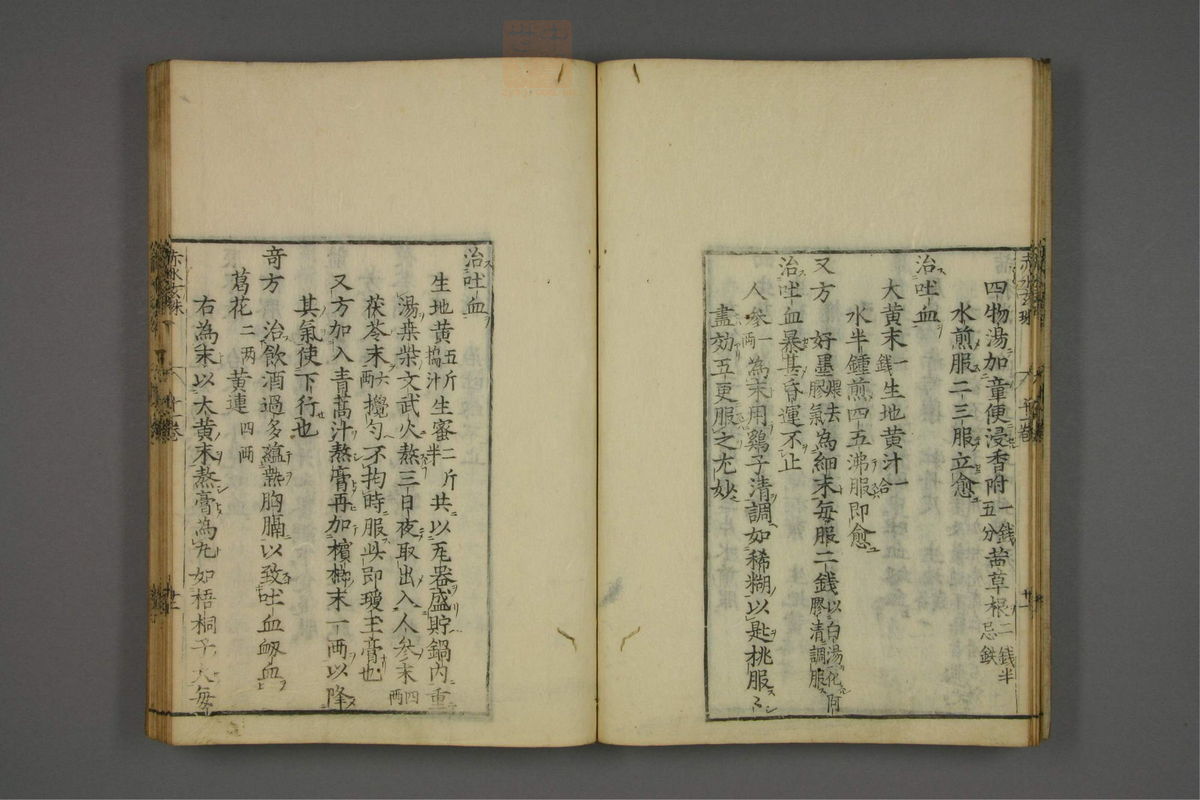 四物湯加童便浸香附一錢五分茜草根二錢半忌鉄
水煎服二三服立愈
治吐血
大黄末一錢生地黄汁一合
水半鍾煎四五沸服即愈
又方　好墨煨去膠氣為細末每服二錢以白湯化阿膠清調服
治吐血暴甚昏運不止
人參一兩為末用鷄子清調如稀糊以匙挑服之
盡効五更服之尤妙
治吐血
生地黄五斤搗汁生蜜二斤半共以瓦器盛貯鍋内重
湯桒柴文武火熬三日夜取出入人參末四兩
茯苓末六兩攪匀不拘時服此即瓊玉膏也
又方加入青蒿汁熬膏再加檳榔末一兩以降
其氣使下行也
奇方　治飲酒過多蘊熱胸膈以致吐血衂血
葛花二兩黄連四兩
右為末以大黄末熬膏為丸如梧桐子大每
赤水玄珠